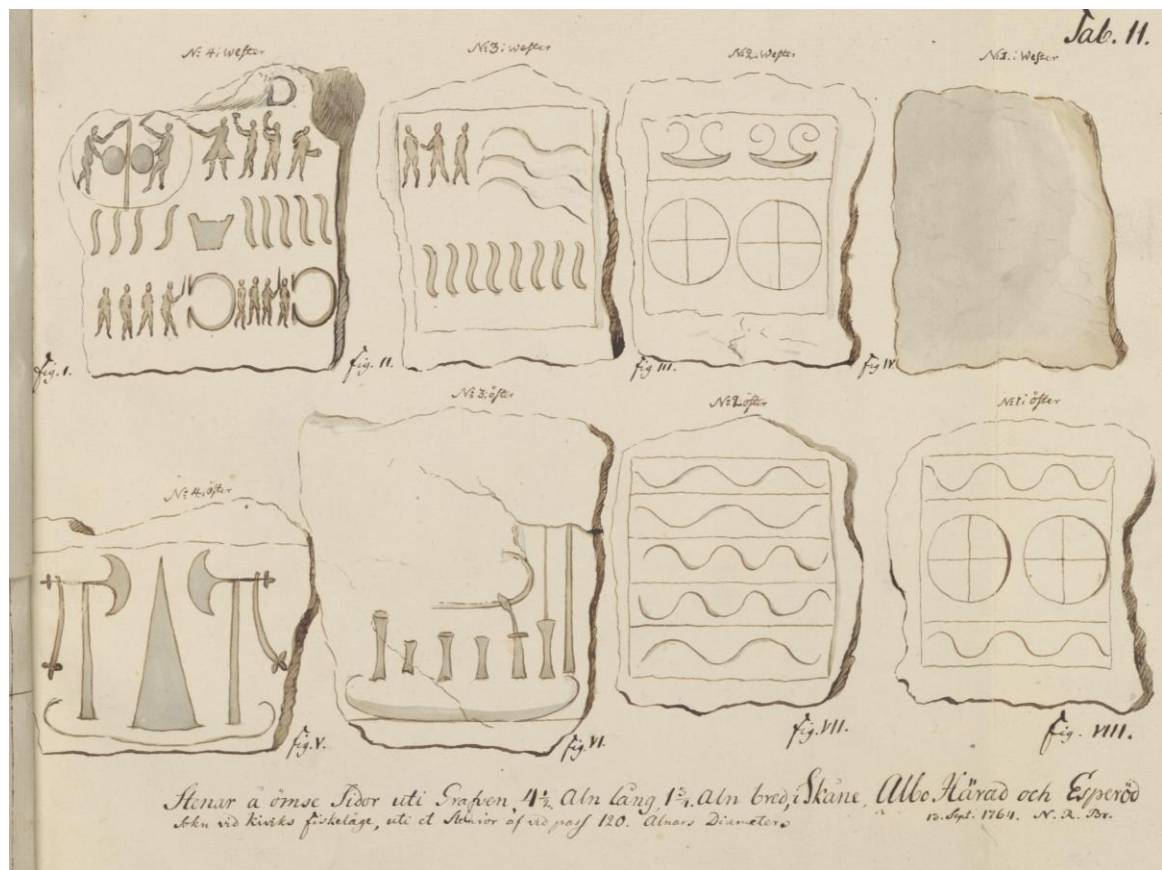 Tab. 11.
No 4 i wester
No 3 i wester
No 2 i Wester
No 1 i Wester
Fig. I.
fig. II.
fig III.
fig IV.
No 4 i öster
No 3 i öster
No 2 i öster
No 1 i öster
fig. V.
fig. VI.
fig. VII.
fig. VIII.
Stenar å ömse Sidor uti Grafven, 4 1/2 Aln lång, 1 3/4 Aln bred, i Skåne, Albo Härad och Esperöd
Sokn vid Kiviks fiskeläge, uti et Stenrör af vid pass 120. Alnars Diameter.
13. Sept. 1764. N. R. Br.